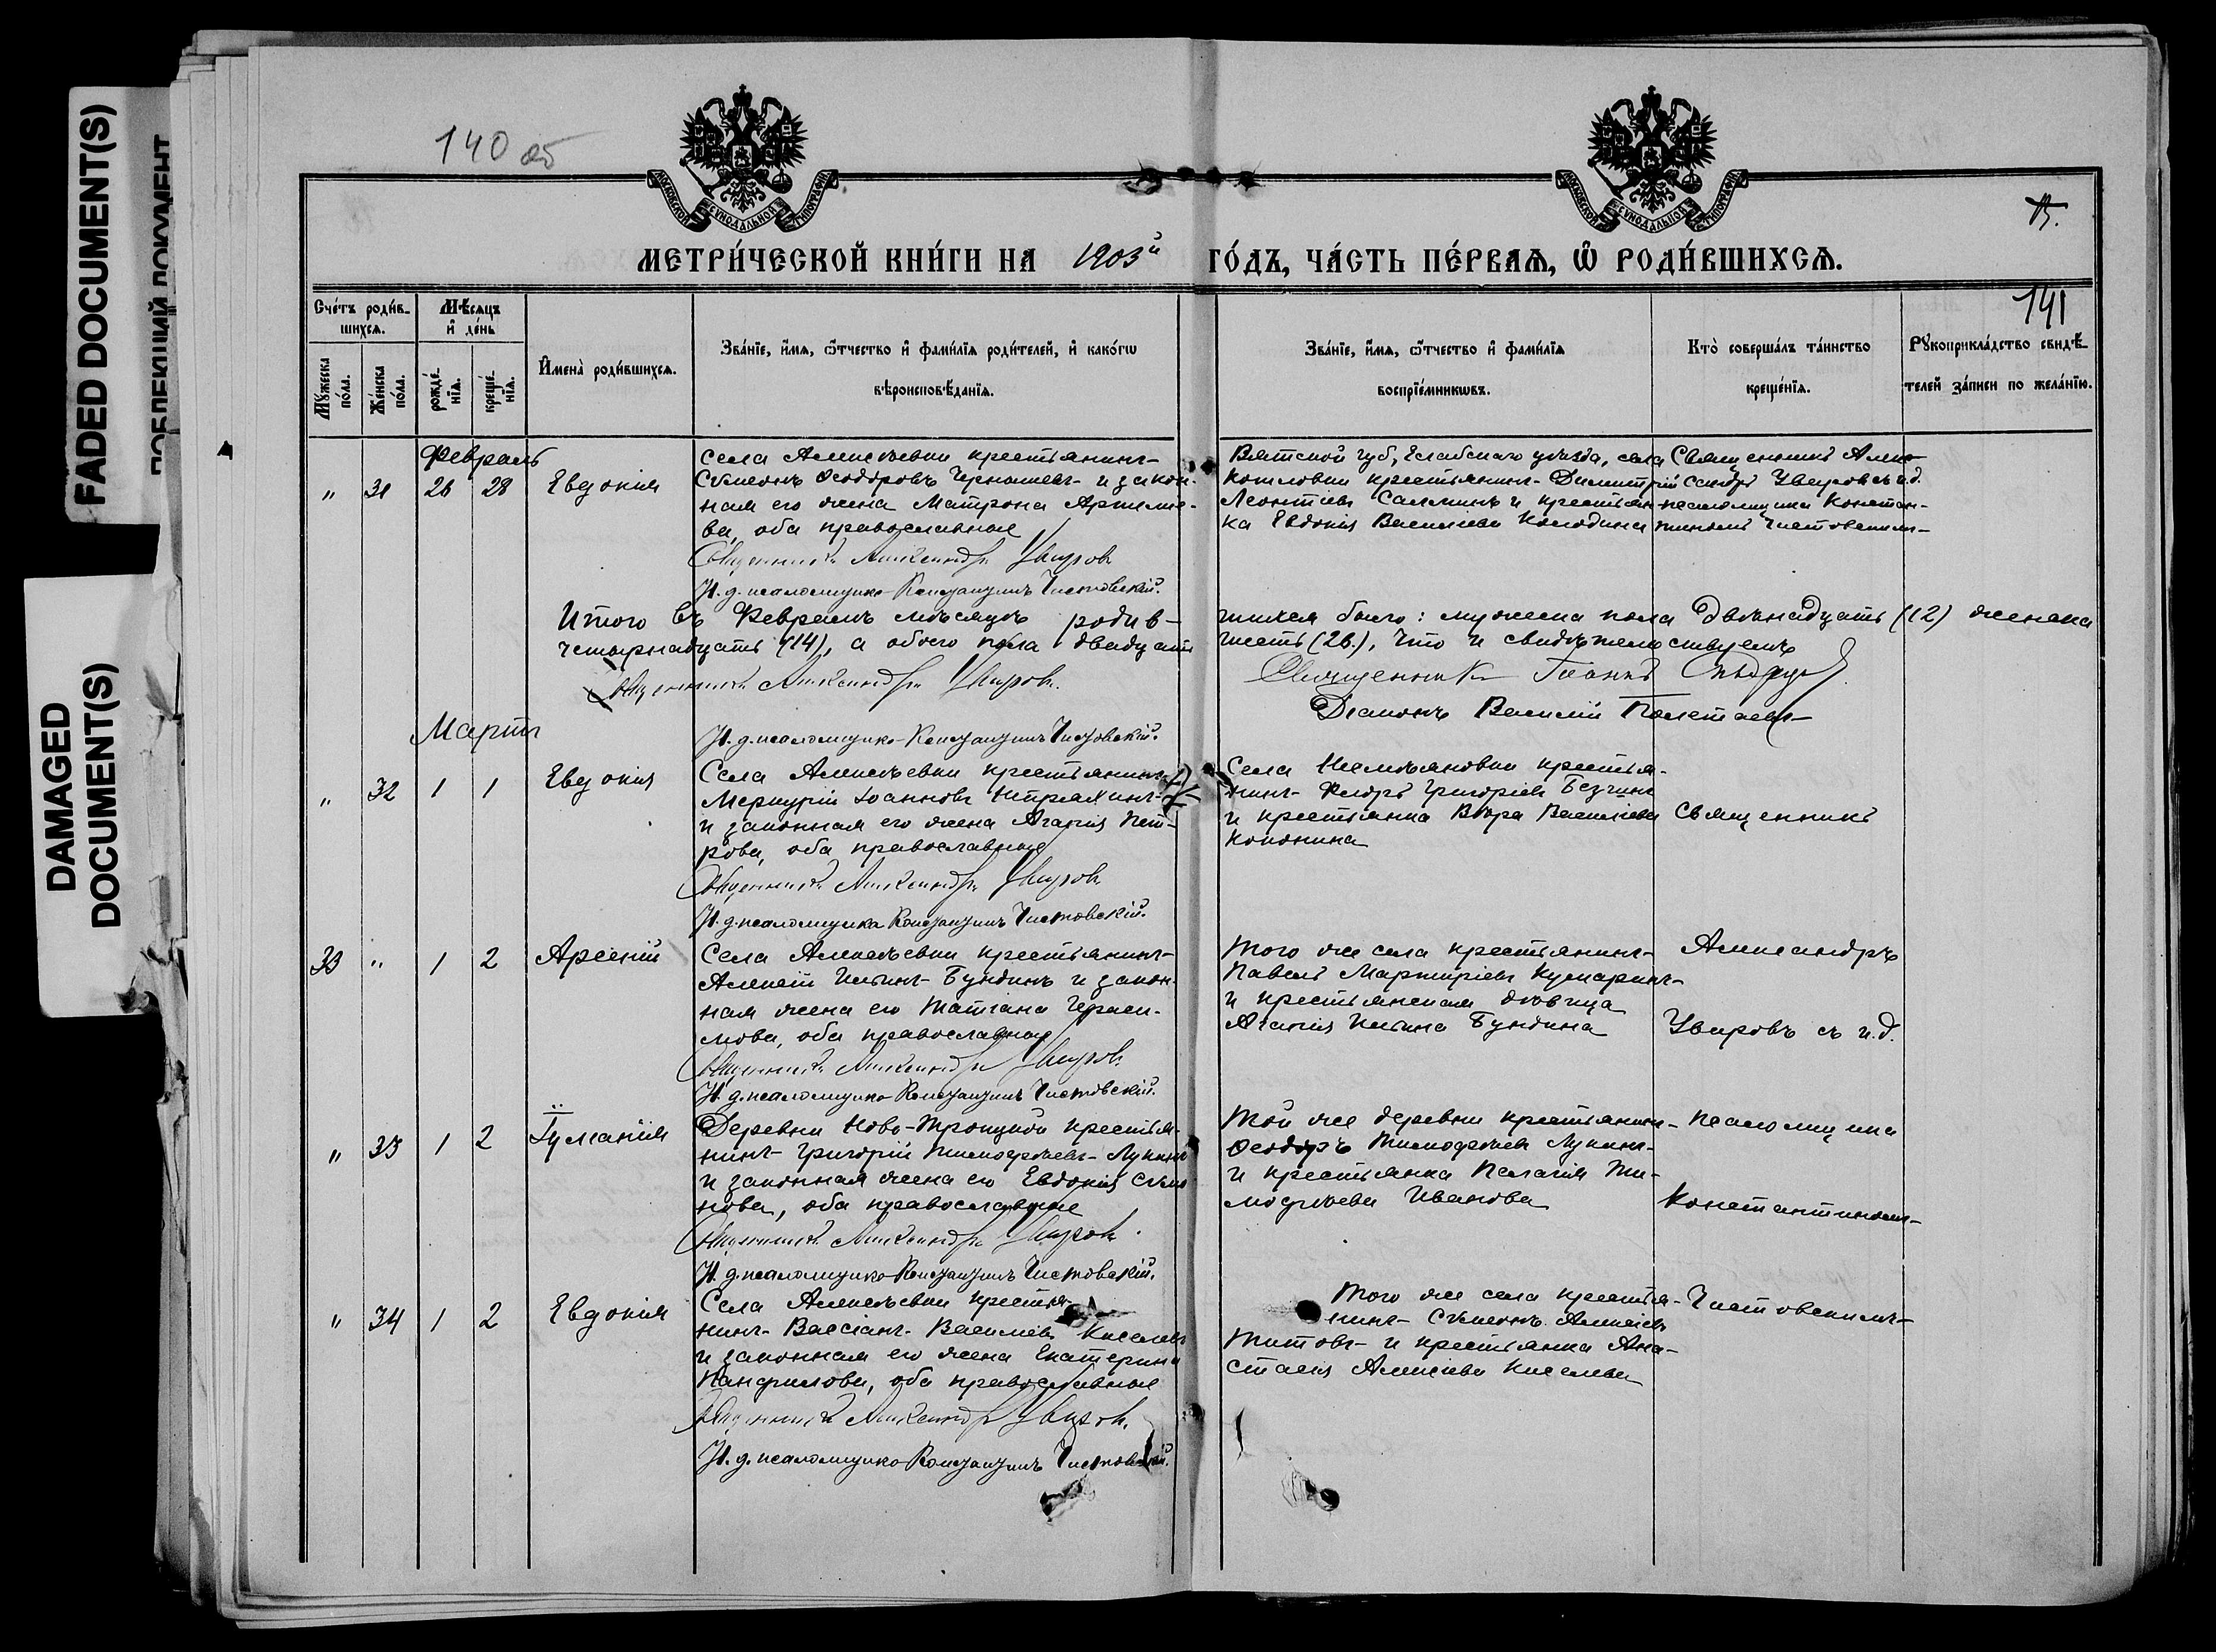 FADED DOCUMENT(S)
DAMAGED
DOCUMENT(S)
140 об
МОСКОВСКОЙ СѴНОДАЛЬНОЙ ТИПОГРАФІИ
МОСКОВСКОЙ СѴНОДАЛЬНОЙ ТИПОГРАФІИ
МЕТРИ́ЧЕСКОЙ КНИ́ГИ НА 1903й ГО́ДЪ, ЧА́СТЬ ПЕ́РВАЯ, Ѡ҆ РОДИ́ВШИХСЯ.
141
Сче́тъ роди́в-
шихся.
Мѣ́сяцъ
и҆ де́нь
Мꙋ́жеска
по́ла.
Же́нска
по́ла.
рожде́-
нїя.
креще́-
нїя.
И҆мена̀ роди́вшихся.
Зва́нїе, и҆́мя, ѻ҆́тчество и҆ фами́лїя роди́телей, и҆ како́гѡ
вѣроисповѣ́данїя.
Зва́нїе, и҆́мя, ѻ҆́тчество и҆ фами́лїя
воспрїе́мникѡвъ.
Кто̀ соверша́лъ та́инство
креще́нїя.
Рꙋкоприкла́дство свидѣ́-
телей за́писи по жела́нїю.
Февраль
" 31 26 28 Евдокія
Села Алексѣевки крестьянинъ
Сѵмеонъ Ѳеодоровъ Чернышевъ и закон-
ная его жена Матрона Артемье-
ва, оба православные
Священникъ Александръ Уваровъ
И. д. псаломщика Константинъ Чистовскій.
Вятской губ, Елабскаго уѣзда, села
Котловки крестьянинъ Димитрій
Леонтіевъ Салминъ и крестьян-
ка Евдокія Василіева Колодина
Священникъ Алек-
сандръ Уваровъ съ и.д.
псаломщика Констан-
тиномъ Чистовскимъ
Итого въ Февралѣ мѣсяцѣ родив-
шихся было: мужеска пола двѣнадцать (12) женска
четырнадцать (14), а обоего пола двадцать
шесть (26), что и свидѣтельствуемъ
Священникъ Александръ Уваровъ.
Священникъ Іоаннъ
Діаконъ Василій Полетаевъ
И. д. псаломщика Константинъ Чистовскій.
Мартъ
" 32 1 1 Евдокія
Села Алексѣевки крестьянинъ
Меркурій Іоанновъ
и законная его жена Агапія Пет-
рова, оба православные
Священникъ Александръ Уваровъ
И. д. псаломщика Константинъ Чистовскій.
Села крестья-
нинъ Ѳедоръ Григоріевъ
и крестьянка Вѣра Василіева
Кононина
Священникъ
33 " 1 2 Арсеній
Села Алексѣевки крестьянинъ
Алексій Ильинъ Бундинъ и закон-
ная жена его Татіана Гераси-
мова, оба православные
Священникъ Александръ Уваровъ.
И. д. псаломщика Константинъ Чистовскій.
Того же села крестьянинъ
Павелъ Мартиріевъ Кумаринъ
и крестьянская дѣвица
Агапія Ильина Бундина
Александръ
Уваровъ съ и.д.
" 33 1 2 Іуліанія
Деревни Ново-Троицкой крестья-
нинъ Григорій Тимоѳеевъ Лукинъ
и законная жена его Евдокія Сѵме-
нова, оба православные
Священникъ Александръ Уваровъ.
И. д. псаломщика Константинъ Чистовскій.
Той же деревни крестьянинъ
Ѳеодоръ Тимоѳеевъ Лукинъ
и крестьянка Пелагія Ти-
моѳеева Иванова
псаломщика
Константиномъ
" 34 1 2 Евдокія
Села Алексѣевки крестья-
нинъ Вассіанъ Василіевъ Киселевъ
и законная его жена Екатерина
Панфилова, оба православные
Священникъ Александръ Уваровъ.
И. д. псаломщика Константинъ Чистовскій.
Того же села крестья-
нинъ Сѵмеонъ Алексіевъ
Титовъ и крестьянка Ана-
стасія Алексіева Киселева
Чистовскимъ